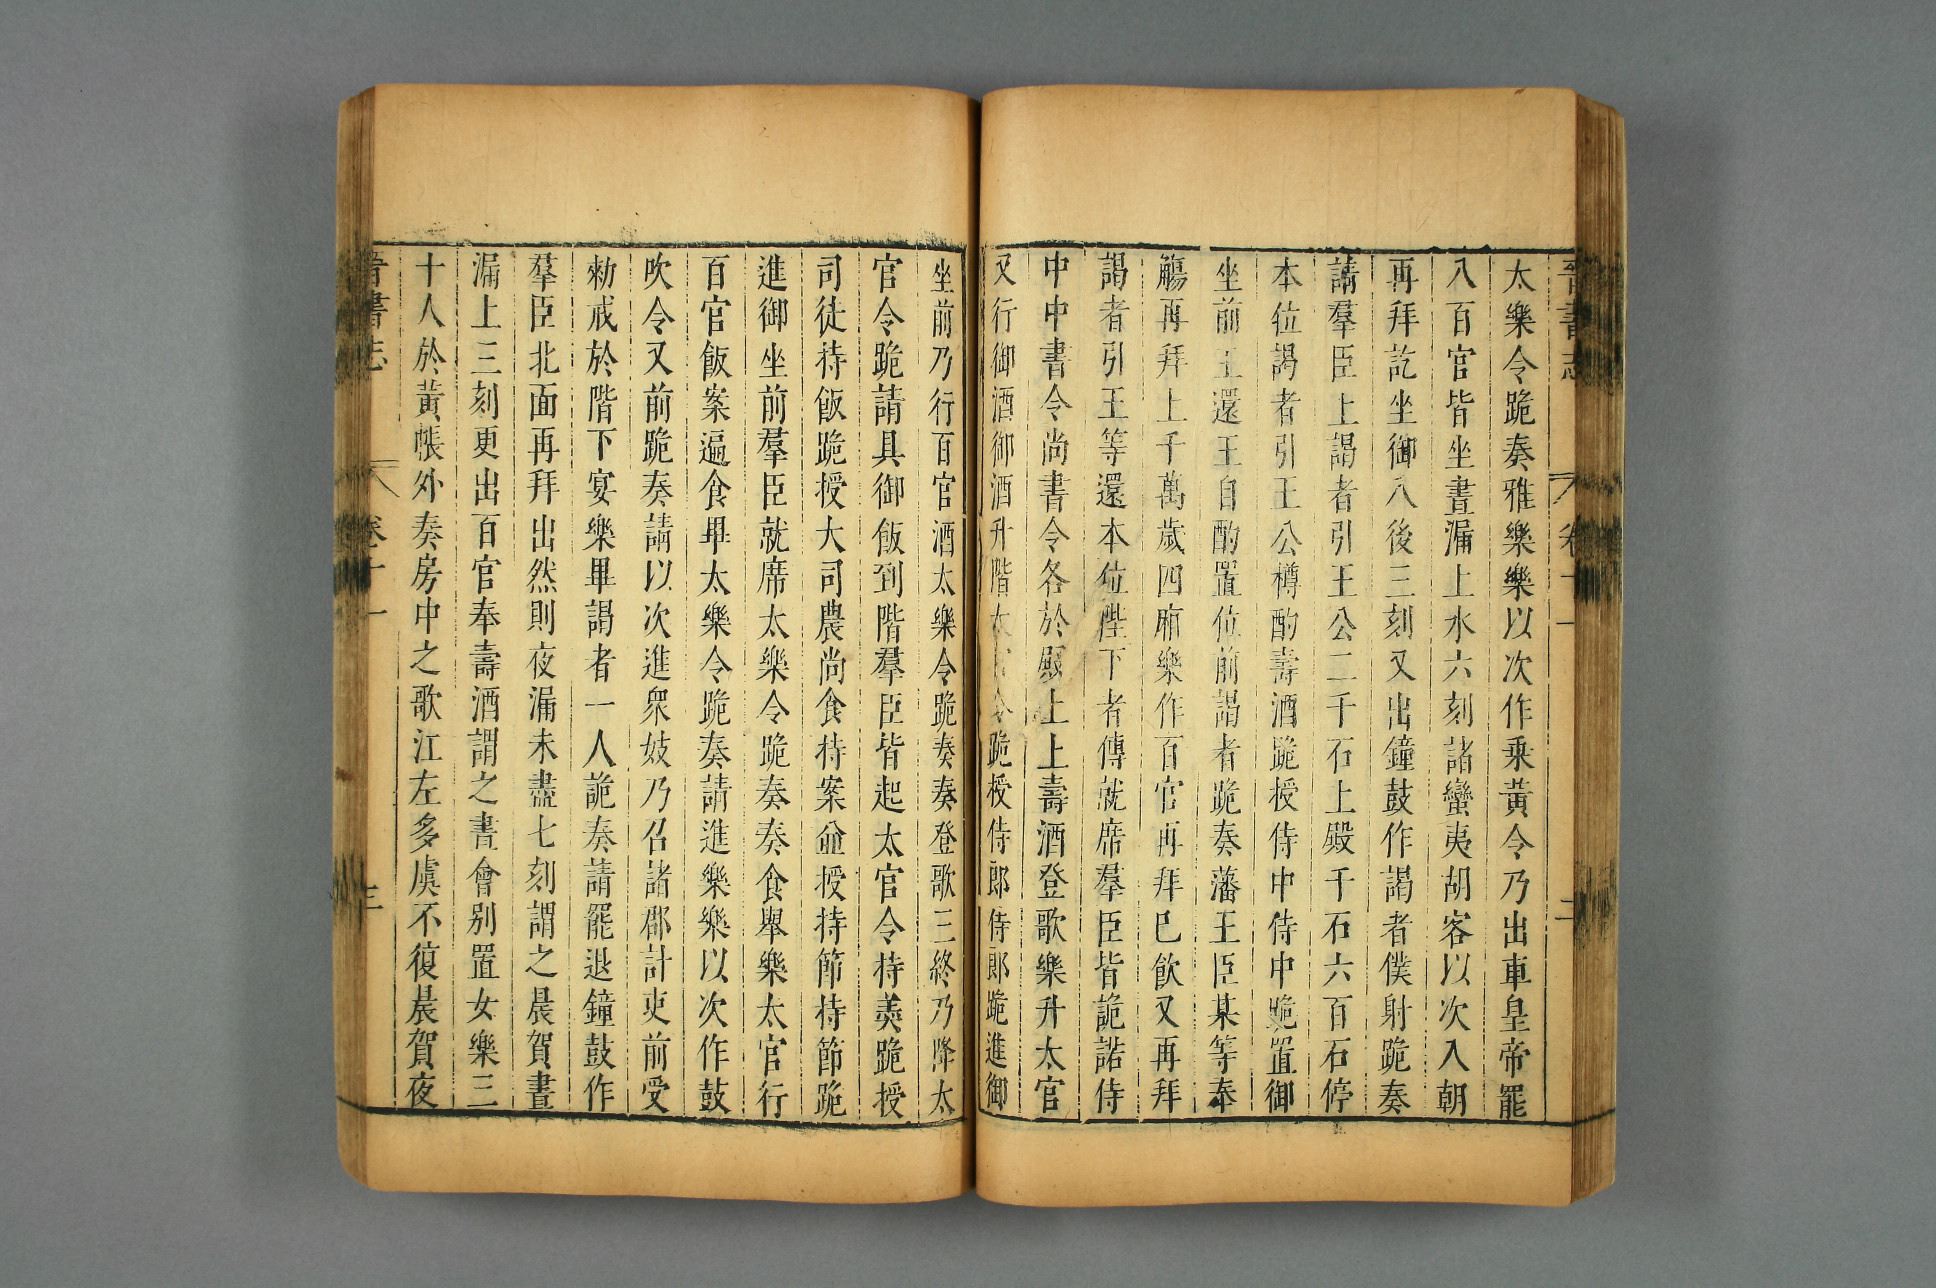 晉書志 卷十一 二
太樂令跪奏雅樂樂以次作乗黃令乃出車皇帝罷
入百官皆坐晝漏上水六刻諸蠻夷胡客以次入朝
再拜訖坐御入後三刻又出鐘鼓作謁者僕射跪奏
請羣臣上謁者引王公二千石上殿千石六百石停
本位謁者引王公樽酌壽酒跪授侍中侍中跪置御
坐前王還王自酌置位前謁者跪奏藩王臣某等奉
觴再拜上千萬歲四廂樂作百官再拜巳飲又再拜
謁者引王等還本位陛下者傳就席羣臣皆詭諾侍
中中書令尚書令各於殿上上壽酒登歌樂升太官
又行御酒御酒升階太官令跪授侍郎侍郎跪進御
坐前乃行百官酒太樂令跪奏奏登歌三終乃降太
官令跪請具御飯到階羣臣皆起太官令持羮跪授
司徒持飯跪授大司農尚食持案並授持節持節跪
進御坐前羣臣就席太樂令跪奏奏食舉樂太官行
百官飯案遍食畢太樂令跪奏請進樂樂以次作鼓
吹令又前跪奏請以次進衆妓乃召諸郡計吏前受
勑戒於階下宴樂畢謁者一人詭奏請罷退鐘鼓作
羣臣北面再拜出然則夜漏未盡七刻謂之晨賀晝
漏上三刻更出百官奉壽酒謂之晝會别置女樂三
十人於黃帳外奏房中之歌江左多虞不復晨賀夜
晉書志 卷十一 三